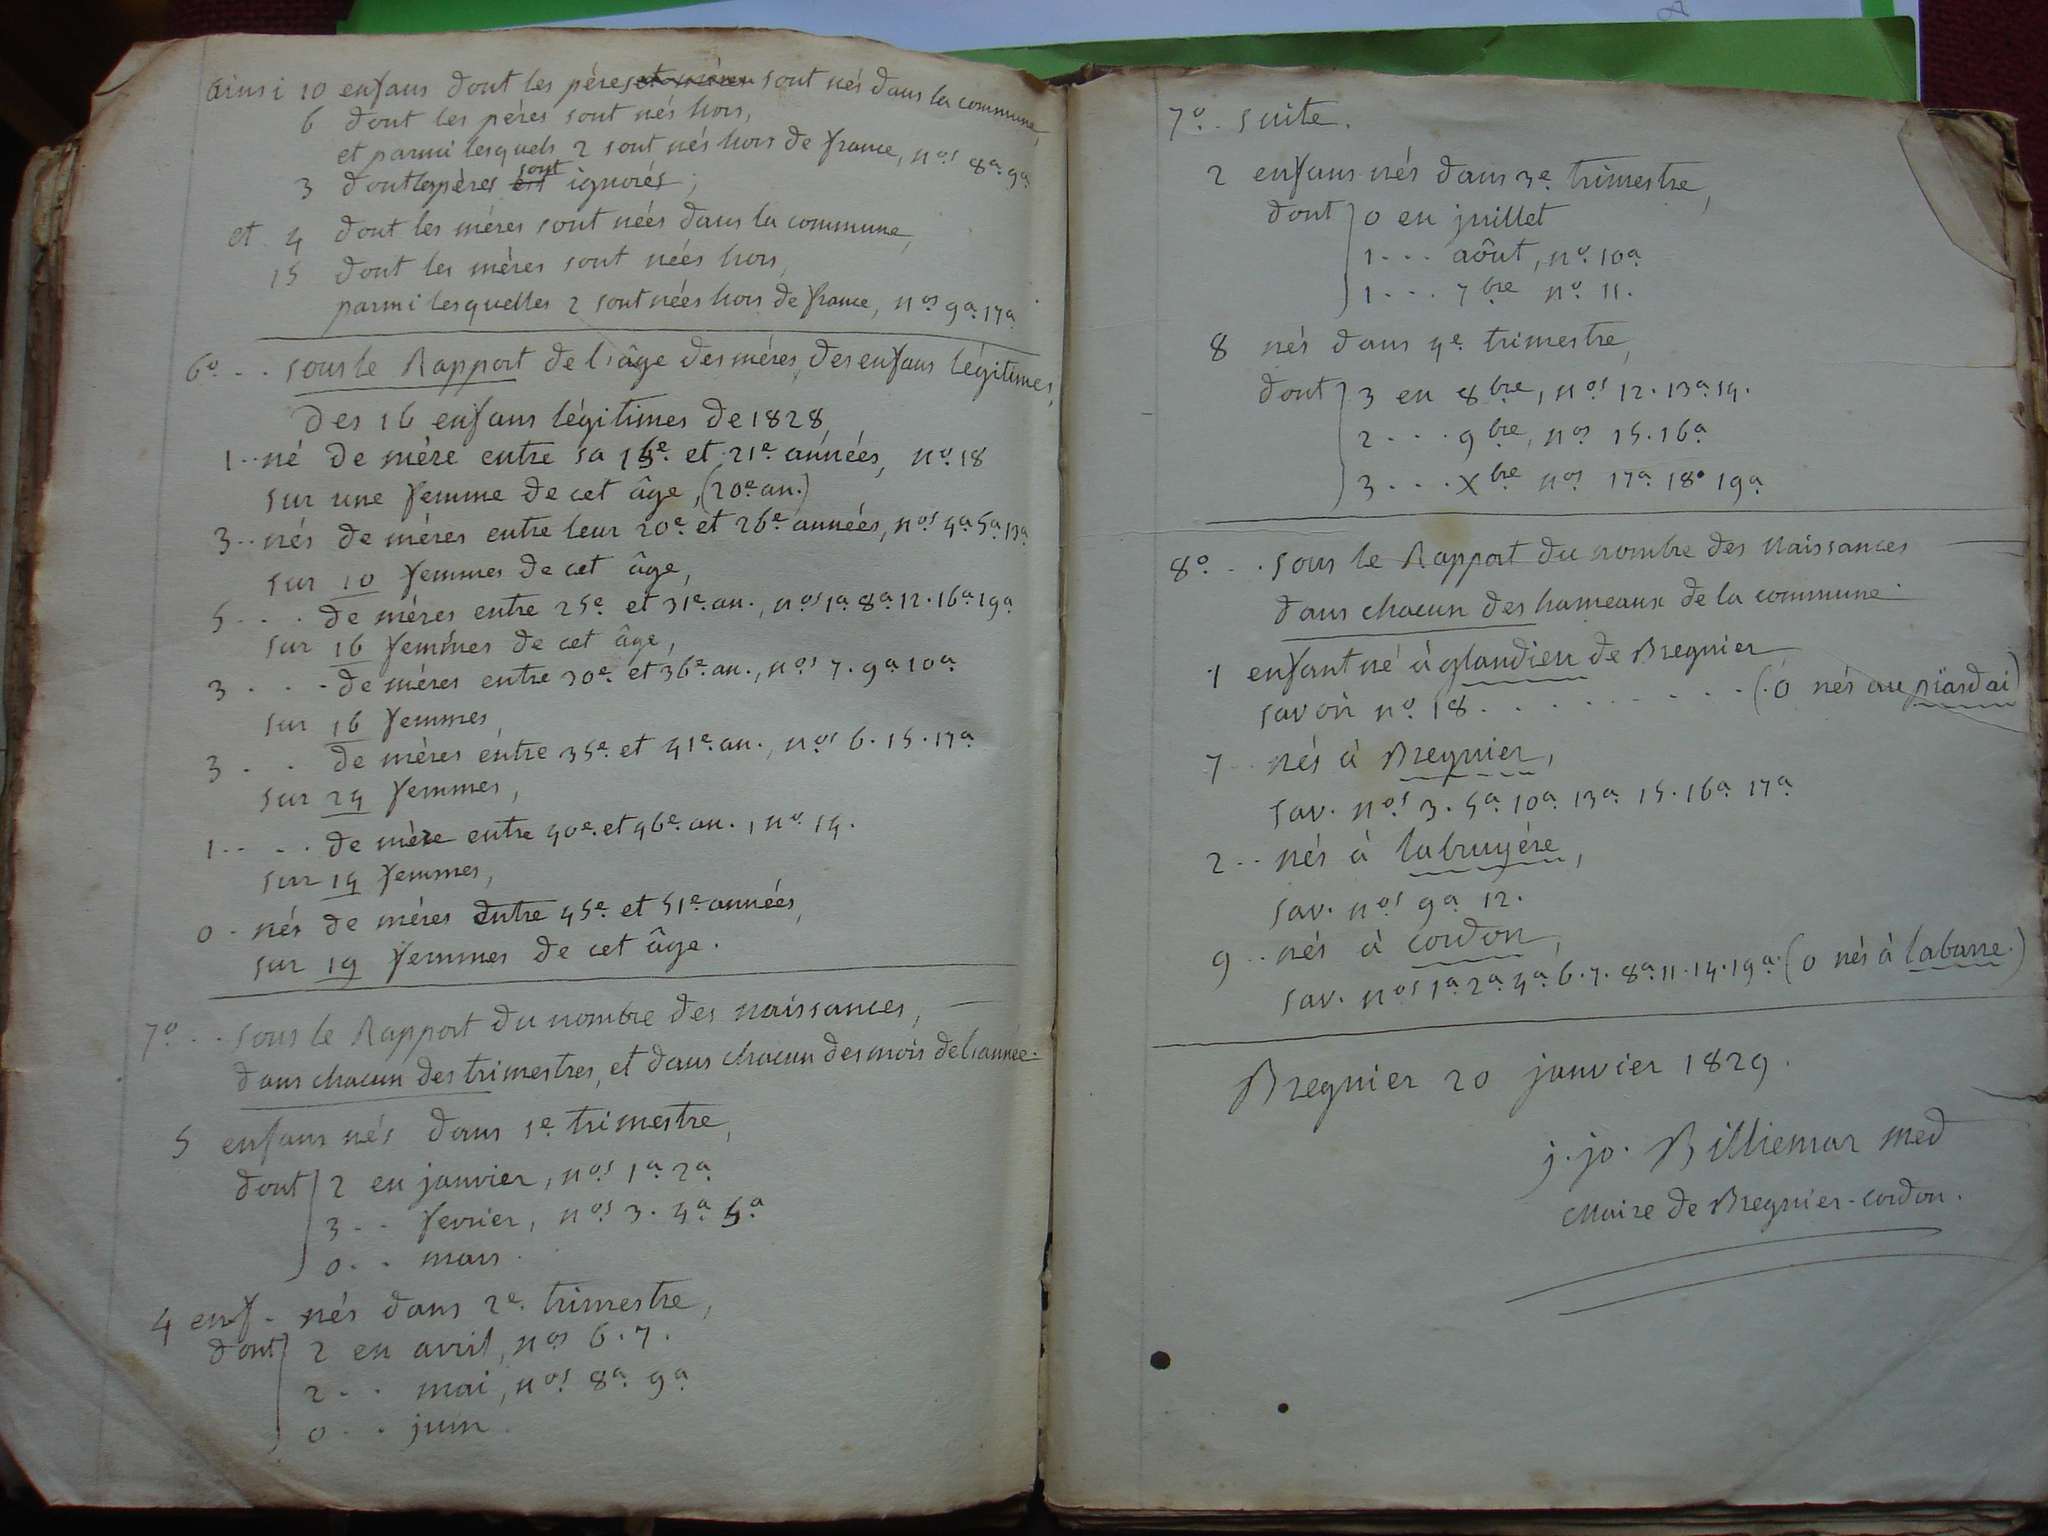 ainsi 10 enfans dont les péres et méres sont nés dans la commune,
6 dont les péres sont nés hors,
et parmi lesquels 2 sont nés hors de france, nos 8a 9a
3 dont les pères est sont ignorés ;
et 4 dont les méres sont neés dans la commune,
15 dont les méres sont neés hors,
parmi lesquelles 2 sont neés hors de france, nos 9a 17a
6o .. sous le Rapport de l'âge des méres, des enfans légitimes,
Des 16 enfans légitimes de 1828,
1 .. né de mére entre sa 15e et 21e années, no 18
sur une femme de cet âge, (20e an.)
3 .. nés de méres entre leur 20e et 26e années, nos 4a 5a 13a
sur 10 femmes de cet âge,
5 ... de méres entre 25e et 31e an., nos 1a 8a 12. 16a 19a
sur 16 femmes de cet âge,
3 ... de méres entre 30e et 36e an., nos 7. 9a 10a
sur 16 femmes,
3 .. de méres entre 35e et 41e an., nos 6. 15. 17a
sur 24 femmes,
1 .... de mère entre 40e et 46e an., no 14.
sur 14 femmes,
0 . nés de méres entre 45e et 51e années,
sur 19 femmes de cet âge.
7o .. sous le Rapport du nombre des naissances,
dans chacun des trimestres, et dans chacun des mois de l'année.
5 enfans nés dans 1e trimestre,
dont 2 en janvier, nos 1a 2a
3 .. fevrier, nos 3. 4a 5a
0 .. mars.
4 enf. nés dans 2e trimestre,
dont 2 en avril, nos 6. 7.
2 .. mai, nos 8a 9a
0 .. juin.
7o .. suite.
2 enfans nés dans 3e trimestre,
dont 0 en juillet
1 ... août, no 10a
1 ... 7bre no 11.
8 nés dans 4e trimestre,
dont 3 en 8bre, nos 12. 13a 14.
2 ... 9bre, nos 15. 16a
3 ... Xbre nos 17a 18. 19a
8o .. sous le Rapport du nombre des Naissances
dans chacun des hameaux de la commune.
1 enfant né à glandieu de Bregnier
savoir no 18 ........ (0 nés au piardai)
7 .. nés à Bregnier,
sav. nos 3. 5a 10a 13a 15. 16a 17a
2 .. nés à labruyére,
sav. nos 9a 12.
9 .. nés à cordon,
sav. nos 1a 2a 4a 6. 7. 8a 11. 14. 19a (0 nés à labarre.)
Bregnier 20 janvier 1829.
j. jo. Billiemar med
Maire de Bregnier-cordon.